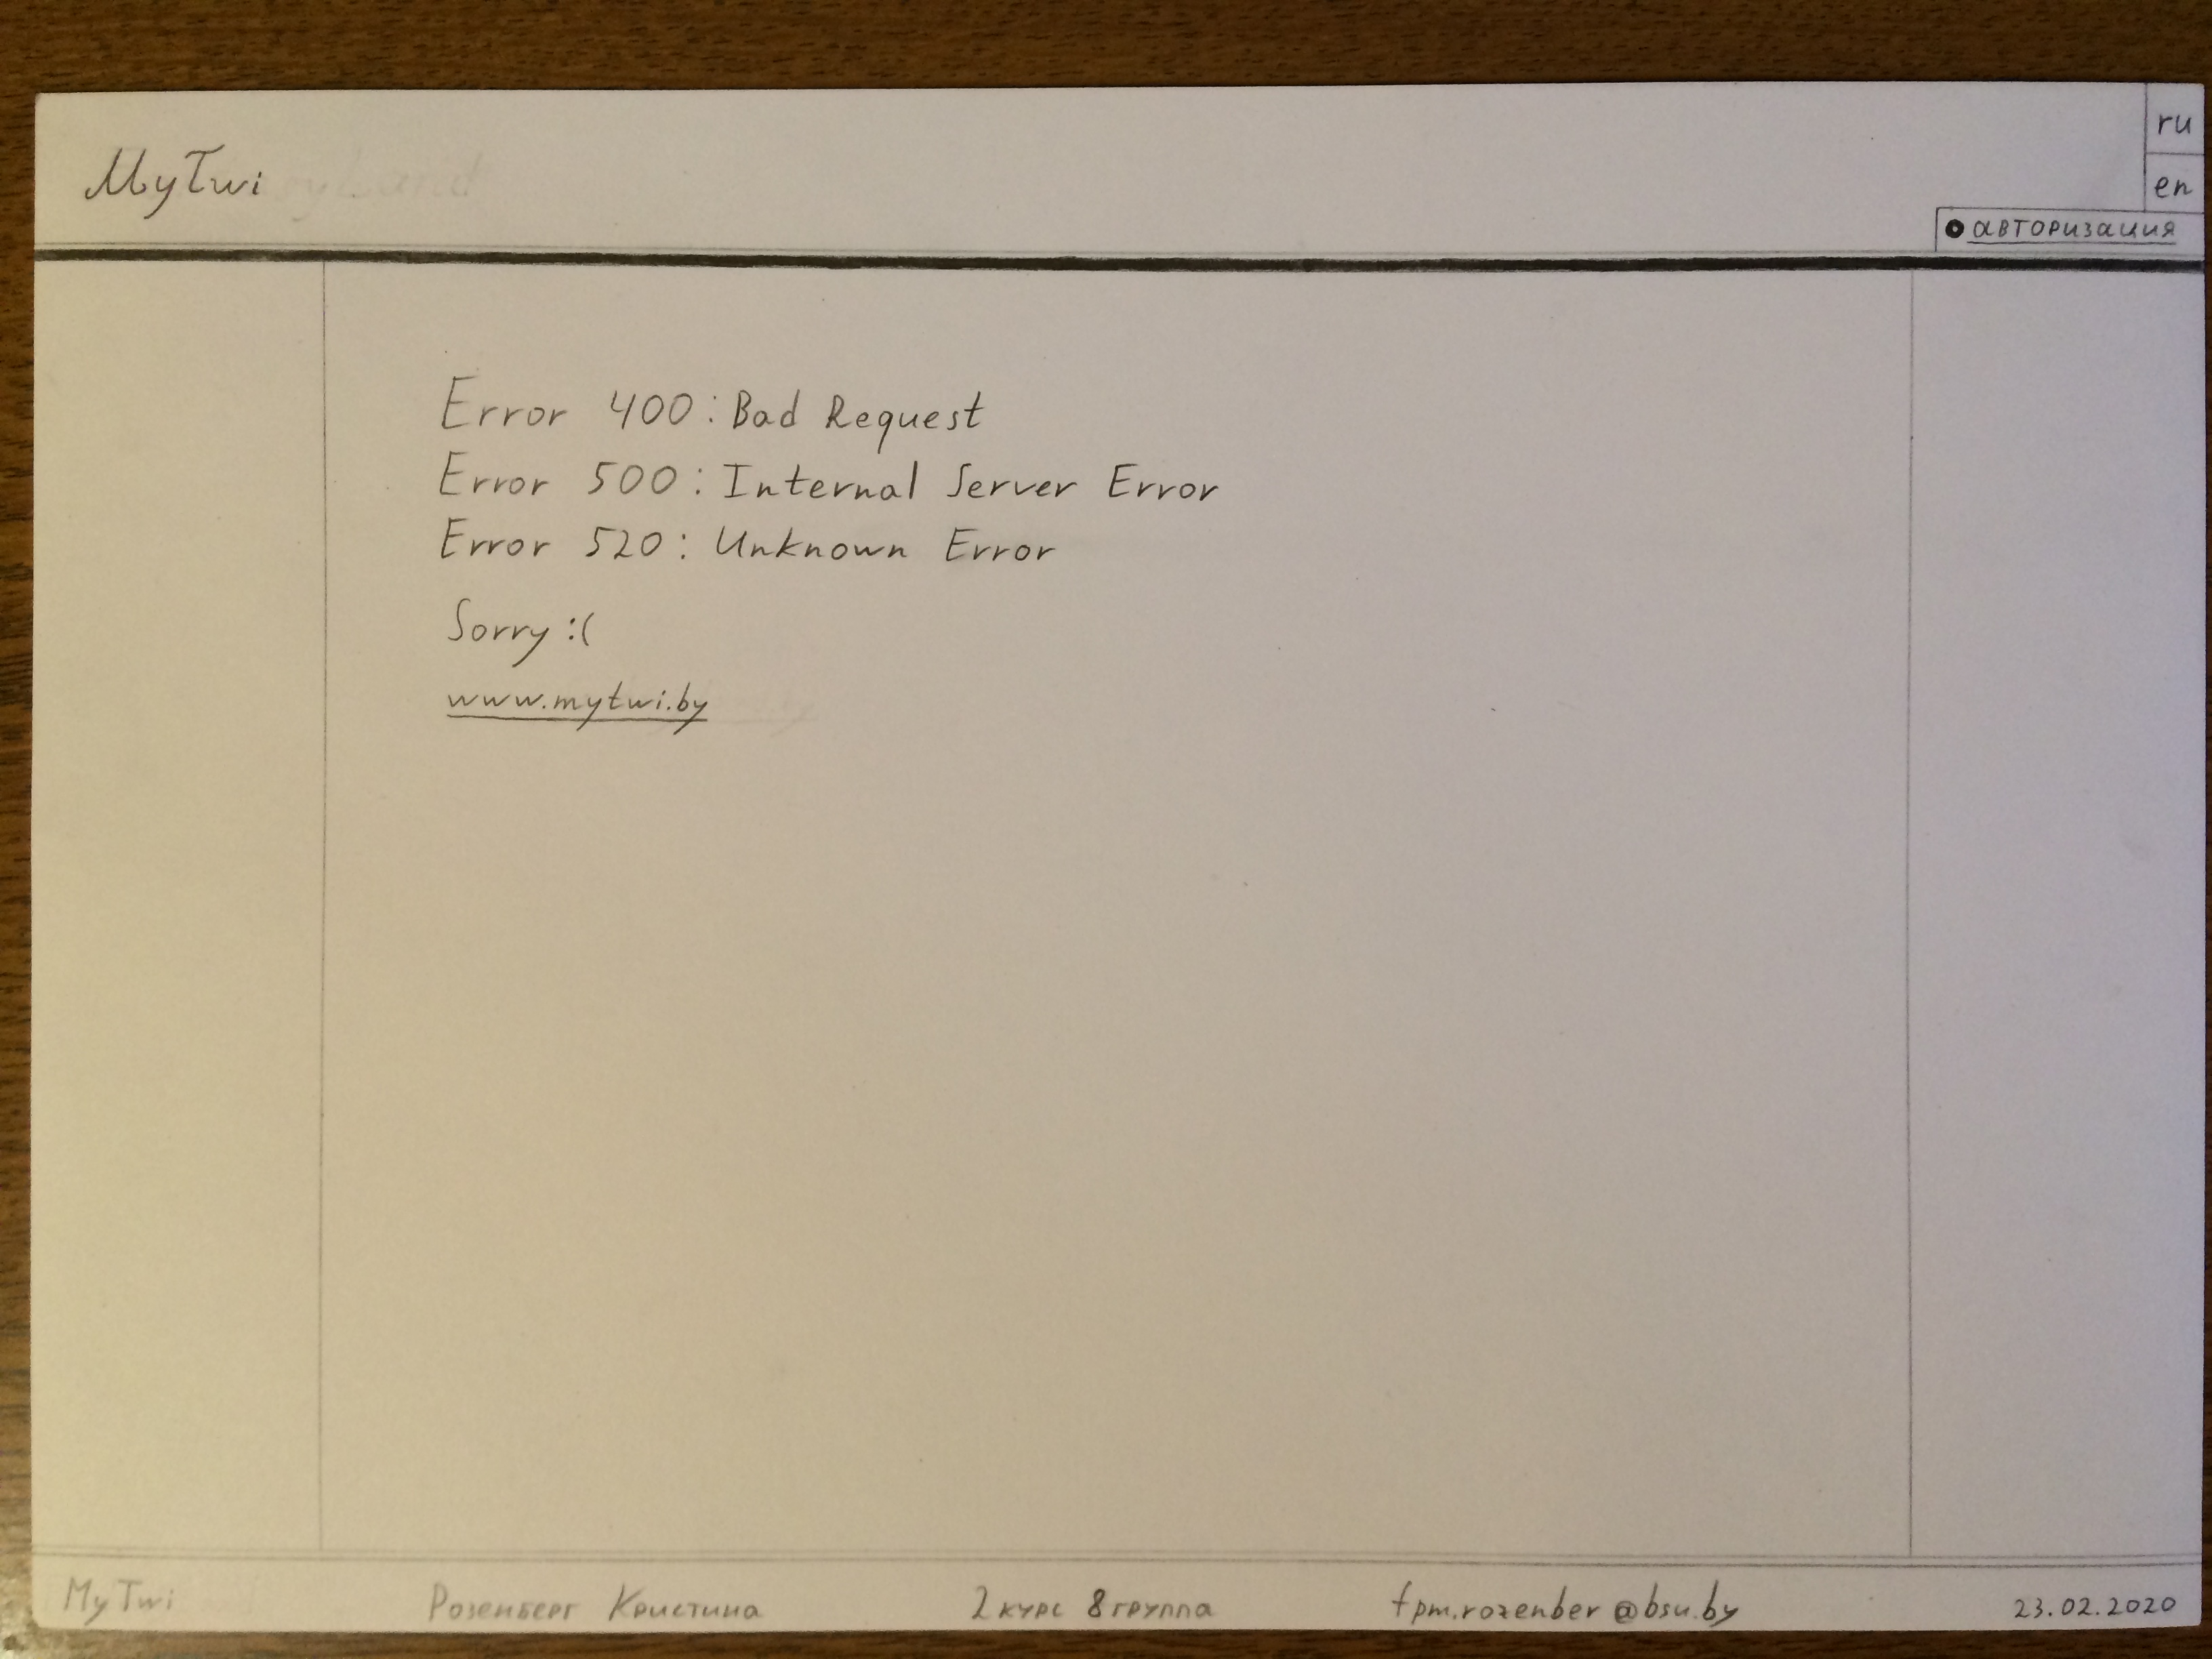 MyTwi
ru
en
авторизация
Error 400: Bad Request
Error 500: Internal Server Error
Error 520: Unknown Error
Sorry :(
www.mytwi.by
MyTwi Розенберг Кристина 2 курс 8 группа fpm.rozenber@bsu.by 23.02.2020